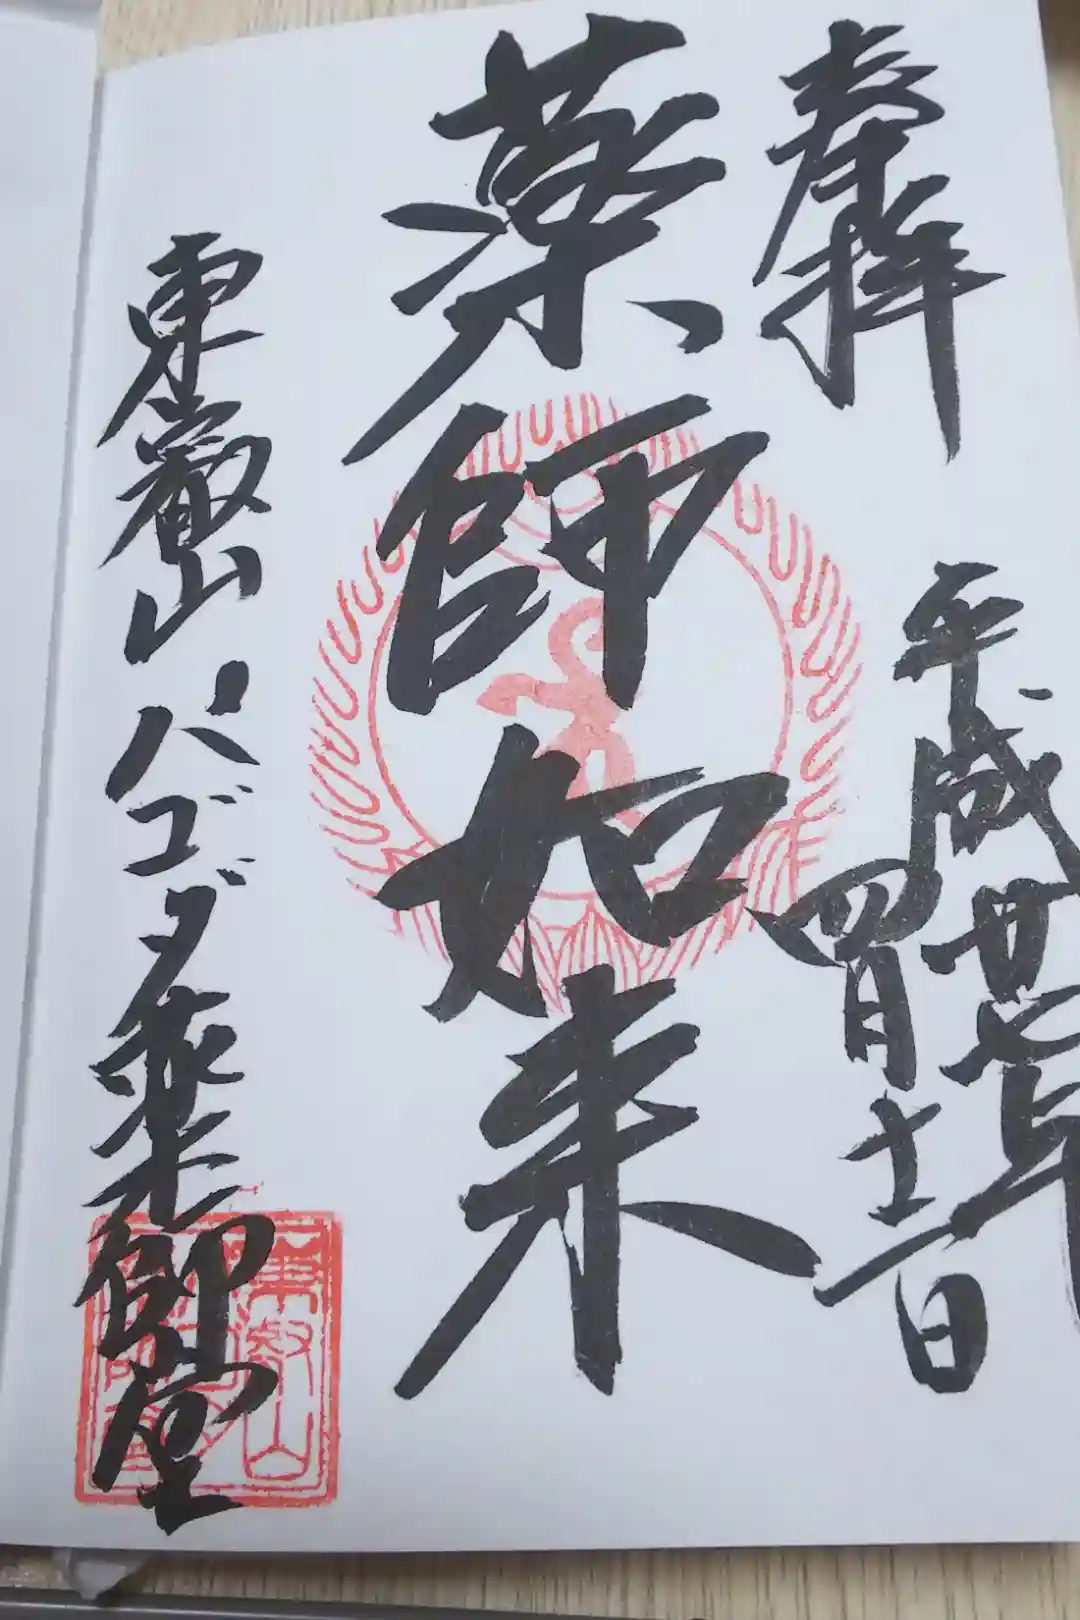 奉拝
平成廿七年
四月十二日
薬師如来
東叡山パゴダ薬師堂